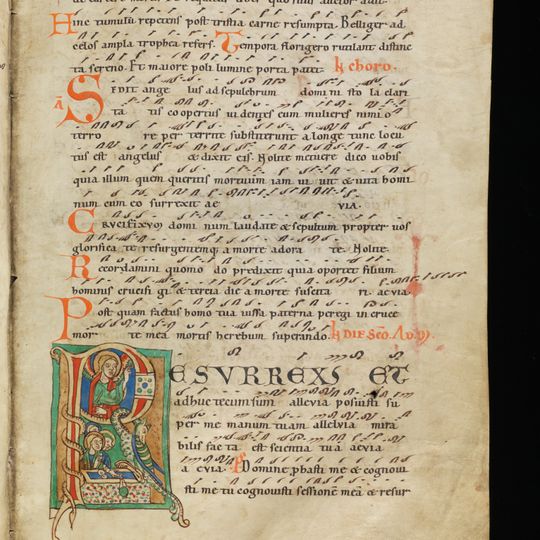 Hinc tumulu repetens post tristia carne resumpta. Belliger ad
celos ampla trophea refers. Tempora florigero rutilant distinc
ta sereno. Et maiore poli lumine porta patet.
SEDIT ange lus ad sepulchrum domi ni sto la clari
ta tis coopertus videntes eum mulieres nimi o
terro re per territe substiterunt a longe tunc locu
tus est angelus & dixit eis. Nolite metuere dico vobis
quia illum quem queritis mortuum iam vi vit & vita homi
num cum eo surrexit ae VIA.
CRVCIFIXVM domi num laudate & sepultum propter vos
glorifica te resurgentemq a morte adora te. Nolite.
Recordamini quomo do predixit quia oportet filium
hominis crucifi gi & tercia die a morte suscita ri. aevia
Post quam factus homo tua iussa paterna peregi in cruce
mor te mea mortis herebum superando.
RESVRREXI ET
adhuc tecum sum allevia posuisti su
per me manum tuam allelvia mira
bilis fac ta est scientia tua aevia
a evia. Domine pbasti me & cognovi
sti me tu cognovisti sessionem meā & resur